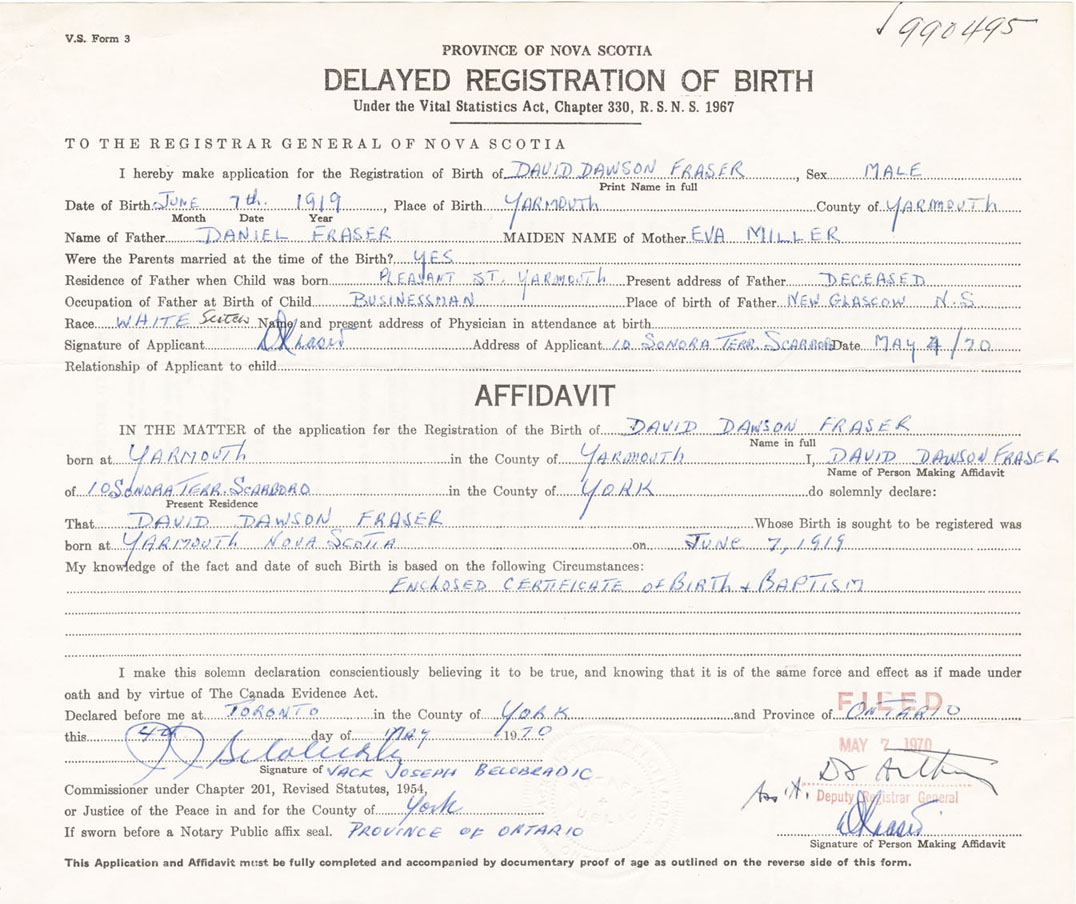 V.S. Form 3
990495
PROVINCE OF NOVA SCOTIA
DELAYED REGISTRATION OF BIRTH
Under the Vital Statistics Act, Chapter 330, R. S. N. S. 1967
TO THE REGISTRAR GENERAL OF NOVA SCOTIA
I hereby make application for the Registration of Birth of DAVID DAWSON FRASER, Sex MALE
Print Name in full
Date of Birth JUNE 7th. 1919, Place of Birth YARMOUTH County of YARMOUTH
Month Date Year
Name of Father DANIEL FRASER MAIDEN NAME of Mother EVA MILLER
Were the Parents married at the time of the Birth? YES
Residence of Father when Child was born PLEASANT ST. YARMOUTH Present address of Father DECEASED
Occupation of Father at Birth of Child BUSINESSMAN Place of birth of Father NEW GLASCOW N.S
Race WHITE Name and present address of Physician in attendance at birth
Signature of Applicant Address of Applicant 10 SONORA TERR. SCARBORO Date MAY 4/70
Relationship of Applicant to child
AFFIDAVIT
IN THE MATTER of the application for the Registration of the Birth of DAVID DAWSON FRASER
Name in full
born at YARMOUTH in the County of YARMOUTH I, DAVID DAWSON FRASER
Name of Person Making Affidavit
of 10 SONORA TERR. SCARBORO in the County of YORK do solemnly declare:
Present Residence
That DAVID DAWSON FRASER Whose Birth is sought to be registered was
born at YARMOUTH NOVA SCOTIA on JUNE 7, 1919
My knowledge of the fact and date of such Birth is based on the following Circumstances:
ENCLOSED CERTIFICATE OF BIRTH + BAPTISM
I make this solemn declaration conscientiously believing it to be true, and knowing that it is of the same force and effect as if made under
oath and by virtue of The Canada Evidence Act.
FILED
Declared before me at TORONTO in the County of YORK and Province of ONTARIO
this 4th day of MAY 1970
MAY 7 1970
Signature of JACK JOSEPH BELOBRADIC
Commissioner under Chapter 201, Revised Statutes, 1954,
Ass't. Deputy Registrar General
or Justice of the Peace in and for the County of York
If sworn before a Notary Public affix seal. PROVINCE OF ONTARIO
Signature of Person Making Affidavit
This Application and Affidavit must be fully completed and accompanied by documentary proof of age as outlined on the reverse side of this form.